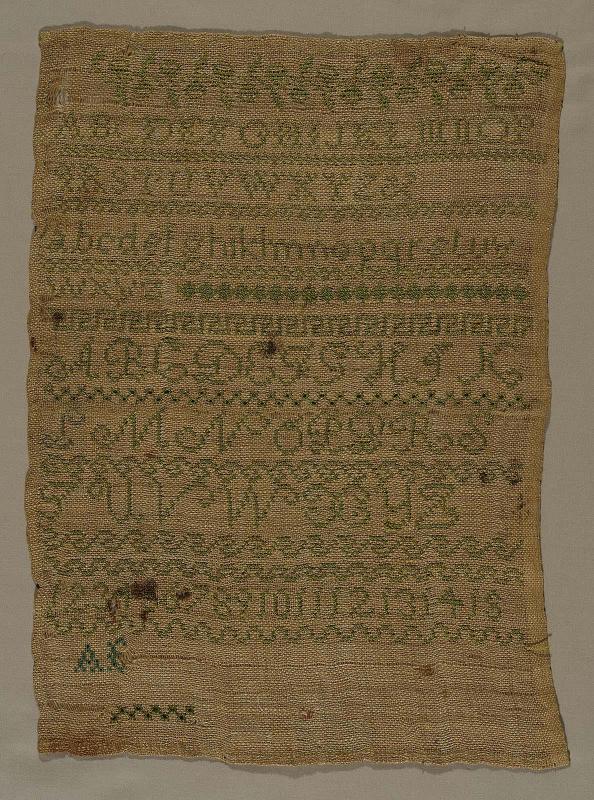 A B C D E F G H I J K L M N O P
Q R S T U V W X Y Z &
a b c d e f g h i k l m n o p q r s t u w
w x y z
A B C D E F G H I K
L M N O P Q R S
U V W X Y Z
1 2 3 4 5 6 7 8 9 10 11 12 13 14 15
A K